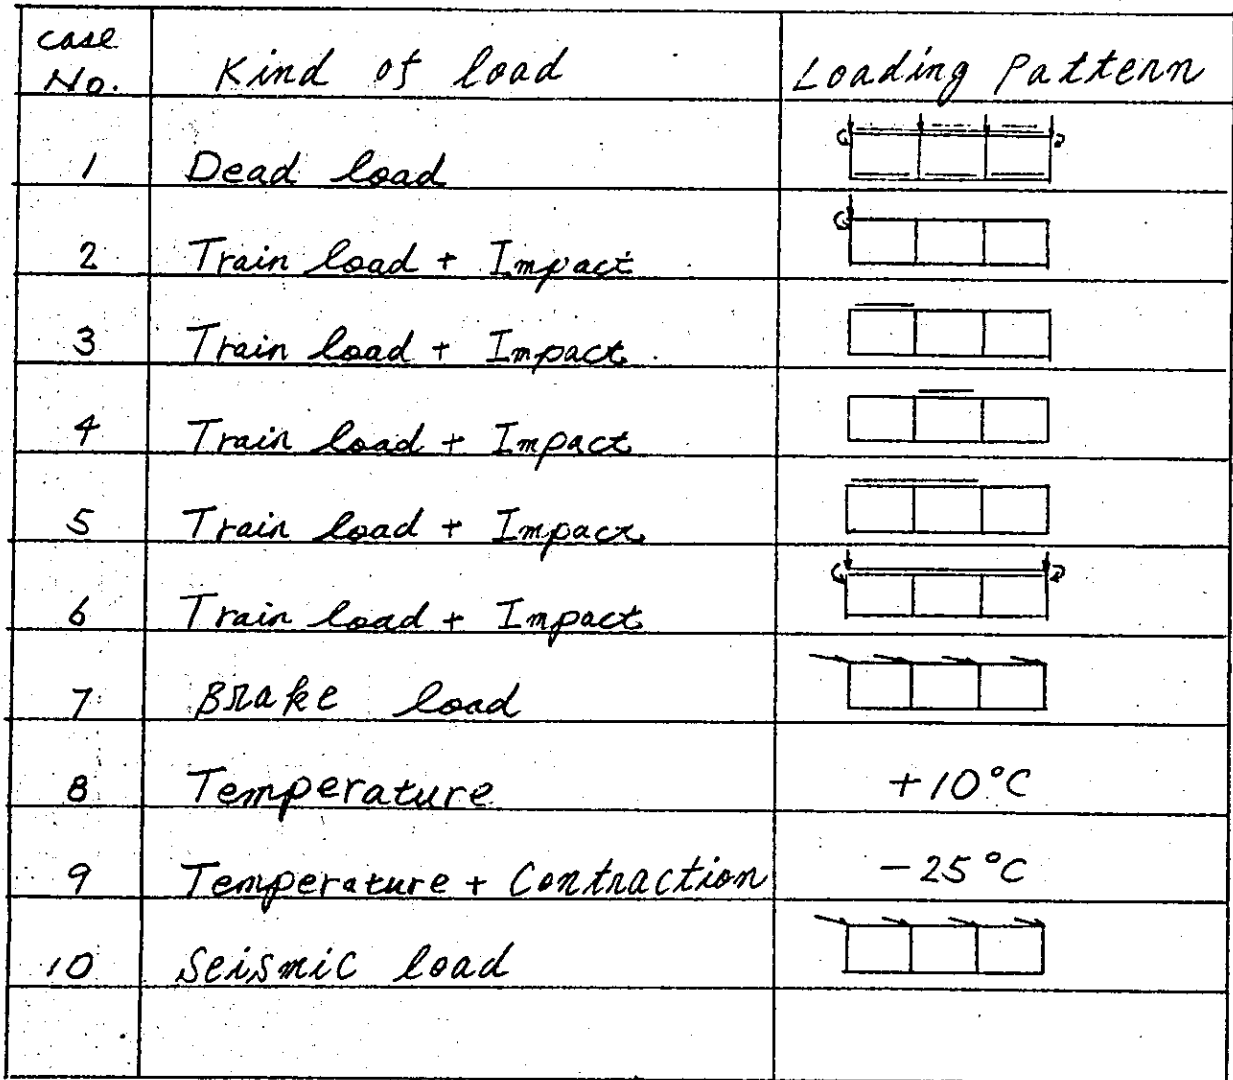 case
No. Kind of load Loading Pattern
1 Dead load
2 Train load + Impact
3 Train load + Impact
4 Train load + Impact
5 Train load + Impact
6 Train load + Impact
7 Brake load
8 Temperature +10°C
9 Temperature + Contraction -25°C
10 Seismic load